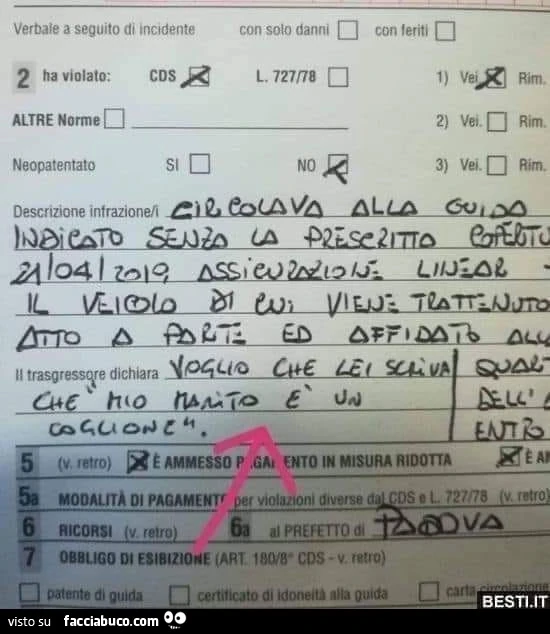 Verbale a seguito di incidente con solo danni con feriti
2 ha violato: CDS L. 727/78 1) Vei. Rim.
ALTRE Norme 2) Vei. Rim.
Neopatentato SI NO 3) Vei. Rim.
Descrizione infrazione/i CIRCOLAVA ALLA GUIDA
INDICATO SENZA LA PRESCRITTO COPERTU
21/04/2019 ASSICURAZIONE LINEAR -
IL VEICOLO DI CUI VIENE TRATTENUTO
ATTO A PARTE ED AFFIDATO ALL
Il trasgressore dichiara VOGLIO CHE LEI SCRIVA QUAR
CHE "MIO MARITO E' UN DELL'
COGLIONE". ENTRO
5 (v. retro) È AMMESSO PAGAMENTO IN MISURA RIDOTTA È A
5a MODALITÀ DI PAGAMENTO per violazioni diverse dal CDS e L. 727/78 (v. retro)
6 RICORSI (v. retro) 6a al PREFETTO di PADOVA
7 OBBLIGO DI ESIBIZIONE (ART. 180/8° CDS - v. retro)
patente di guida certificato di idoneità alla guida carta circolazione
BESTI.IT
visto su facciabuco.com